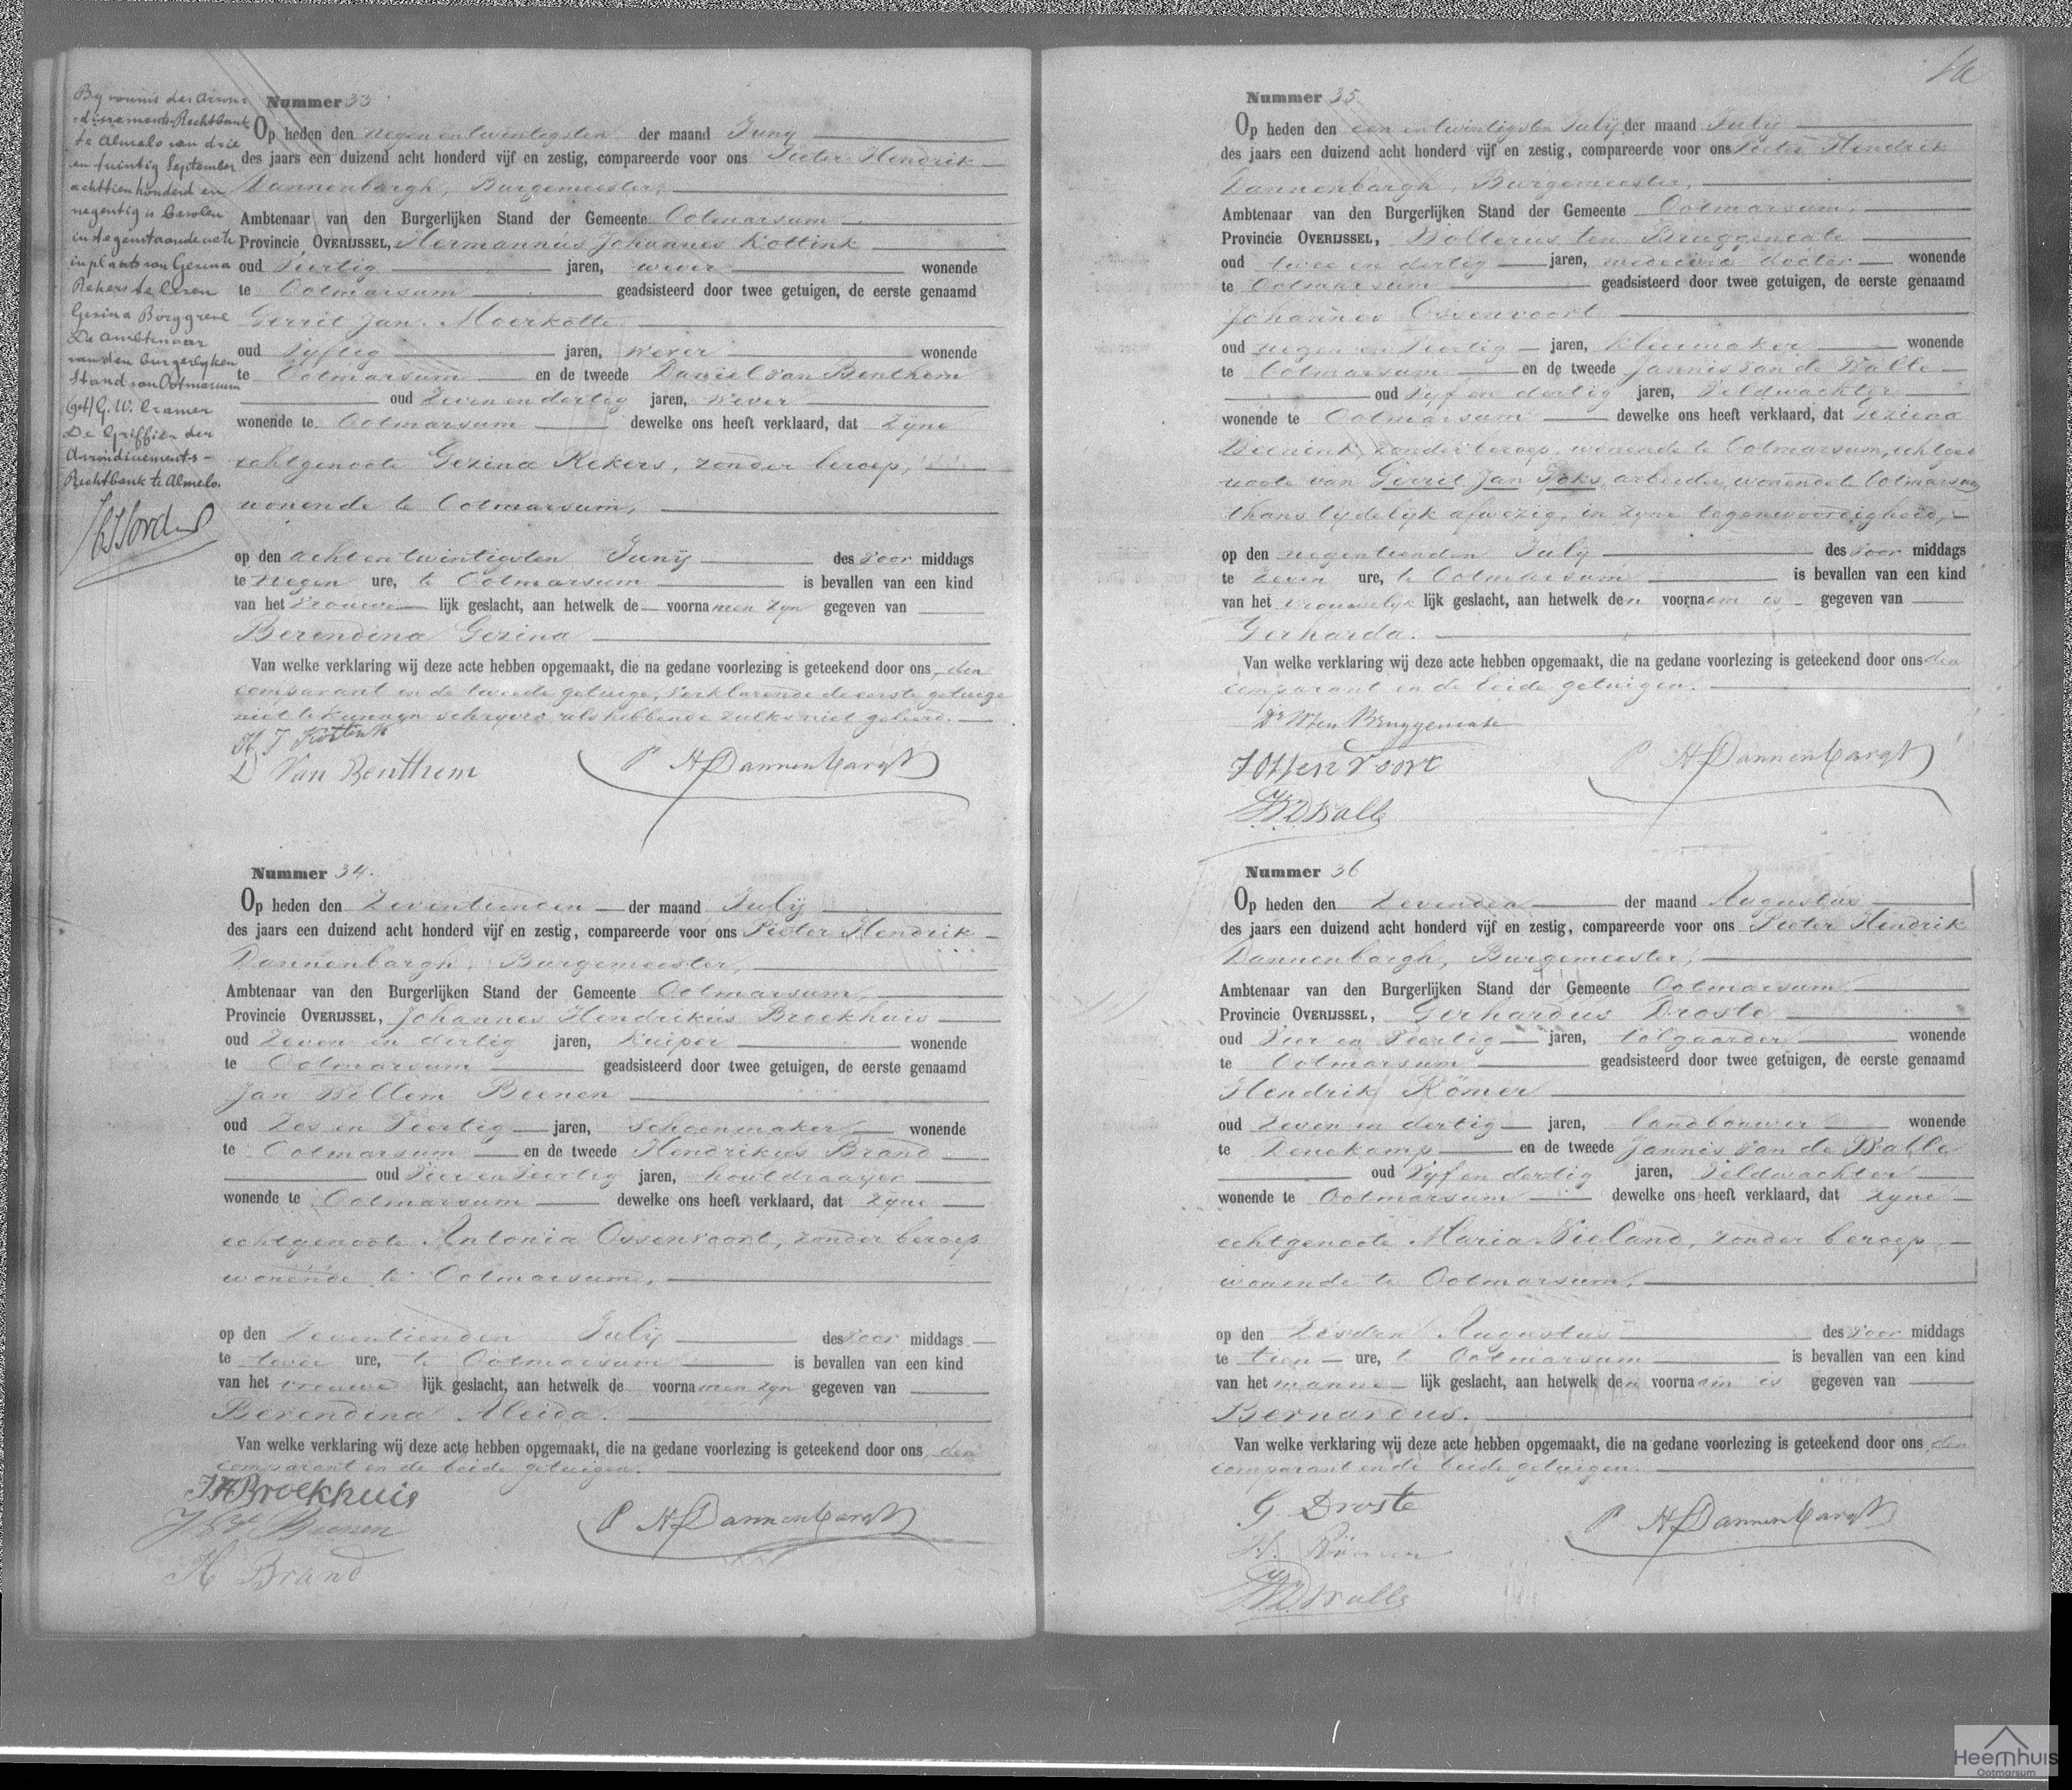 By vonnis der Arron-
dissements-Rechtbank
te Almelo van drie
en twintig September
achttienhonderd en
negentig is bevolen
in tegenstaande acte
in plaats van Gesina
Rekers te lezen
Gesina Borggreve
De Ambtenaar
van den burgerlyken
Stand van Ootmarsum
(get) G. W. Cramer
De Griffier der
Arrondissements-
Rechtbank te Almelo.
Nummer 33
Op heden den negen en twintigsten der maand Juny
des jaars een duizend acht honderd vijf en zestig, compareerde voor ons Pieter Hendrik
Dannenbargh, Burgemeester,
Ambtenaar van den Burgerlijken Stand der Gemeente Ootmarsum
Provincie OVERIJSSEL, Hermannus Johannes Kottink
oud Veertig jaren, wever wonende
te Ootmarsum geadsisteerd door twee getuigen, de eerste genaamd
Gerrit Jan Moerkotte
oud Vyftig jaren, Wever wonende
te Ootmarsum en de tweede Daniel van Benthem
oud Zeven en dertig jaren, Wever
wonende te Ootmarsum dewelke ons heeft verklaard, dat Zyne
echtgenoote Gezina Rekers, zonder beroep,
wonende te Ootmarsum,
op den acht en twintigsten Junij des Voor middags
te negen ure, te Ootmarsum is bevallen van een kind
van het Vrouwe lijk geslacht, aan hetwelk de voornamen zyn gegeven van
Berendina Gezina
Van welke verklaring wij deze acte hebben opgemaakt, die na gedane voorlezing is geteekend door ons, den
comparant en de tweede getuige, verklarende de eerste getuige
niet te kunnen schryven, als hebbende zulks niet geleerd.
H J Kottink
D Van Benthem P H Dannenbargh
Nummer 34.
Op heden den Zeventienden der maand July
des jaars een duizend acht honderd vijf en zestig, compareerde voor ons Pieter Hendrik
Dannenbargh, Burgemeester,
Ambtenaar van den Burgerlijken Stand der Gemeente Ootmarsum,
Provincie OVERIJSSEL, Johannes Hendrikus Broekhuis
oud Zeven en dertig jaren, Kuiper wonende
te Ootmarsum geadsisteerd door twee getuigen, de eerste genaamd
Jan Willem Beenen
oud Zes en Veertig jaren, Schoenmaker wonende
te Ootmarsum en de tweede Hendrikus Brand
oud Vier en Veertig jaren, houtdraayer
wonende te Ootmarsum dewelke ons heeft verklaard, dat zyne
echtgenoote Antonia Ossenvoort, zonder beroep
wonende te Ootmarsum,
op den Zeventienden July des Voor middags
te twee ure, te Ootmarsum is bevallen van een kind
van het vrouwe lijk geslacht, aan hetwelk de voornamen zyn gegeven van
Berendina Aleida.
Van welke verklaring wij deze acte hebben opgemaakt, die na gedane voorlezing is geteekend door ons, den
comparant en de beide getuigen.
J H Broekhuis
J W Beenen P H Dannenbargh
H Brand
Nummer 35.
Op heden den een en twintigsten July der maand July
des jaars een duizend acht honderd vijf en zestig, compareerde voor ons Pieter Hendrik
Dannenbargh, Burgemeester,
Ambtenaar van den Burgerlijken Stand der Gemeente Ootmarsum,
Provincie OVERIJSSEL, Wolterus ten Bruggencate
oud twee en dertig jaren, medecine doctor wonende
te Ootmarsum geadsisteerd door twee getuigen, de eerste genaamd
Johannes Ossenvoort
oud negen en Veertig jaren, Kleermaker wonende
te Ootmarsum en de tweede Jannis van de Walle
oud Vyf en dertig jaren, Veldwachter
wonende te Ootmarsum dewelke ons heeft verklaard, dat Geziena
zonder beroep, wonende te Ootmarsum, echtge
noote van Gerrit Jan Foks, arbeider, wonende te Ootmarsum
thans tijdelijk afwezig, in zyne tegenwoordigheid,
op den negentienden July des Voor middags
te Zeven ure, te Ootmarsum is bevallen van een kind
van het vrouwelyk lijk geslacht, aan hetwelk den voornaam is gegeven van
Gerharda.
Van welke verklaring wij deze acte hebben opgemaakt, die na gedane voorlezing is geteekend door ons den
comparant en de beide getuigen.
Dr W ten Bruggencate
J Ossenvoort P H Dannenbargh
J V D Walle
Nummer 36
Op heden den Zevenden der maand Augustus
des jaars een duizend acht honderd vijf en zestig, compareerde voor ons Pieter Hendrik
Dannenbargh, Burgemeester,
Ambtenaar van den Burgerlijken Stand der Gemeente Ootmarsum
Provincie OVERIJSSEL, Gerhardus Droste
oud Vier en Veertig jaren, tolgaarder wonende
te Ootmarsum geadsisteerd door twee getuigen, de eerste genaamd
Hendrik Römer
oud Zeven en dertig jaren, landbouwer wonende
te Denekamp en de tweede Jannis van de Walle
oud Vyf en dertig jaren, Veldwachter
wonende te Ootmarsum dewelke ons heeft verklaard, dat zyne
echtgenoote Maria Vieland, zonder beroep,
wonende te Ootmarsum,
op den Zesden Augustus des Voor middags
te tien ure, te Ootmarsum is bevallen van een kind
van het manne lijk geslacht, aan hetwelk den voornaam is gegeven van
Bernardus.
Van welke verklaring wij deze acte hebben opgemaakt, die na gedane voorlezing is geteekend door ons, den
comparant en de beide getuigen.
G. Droste
H. Römer P H Dannenbargh
J V D Walle
Heemhuis
Ootmarsum